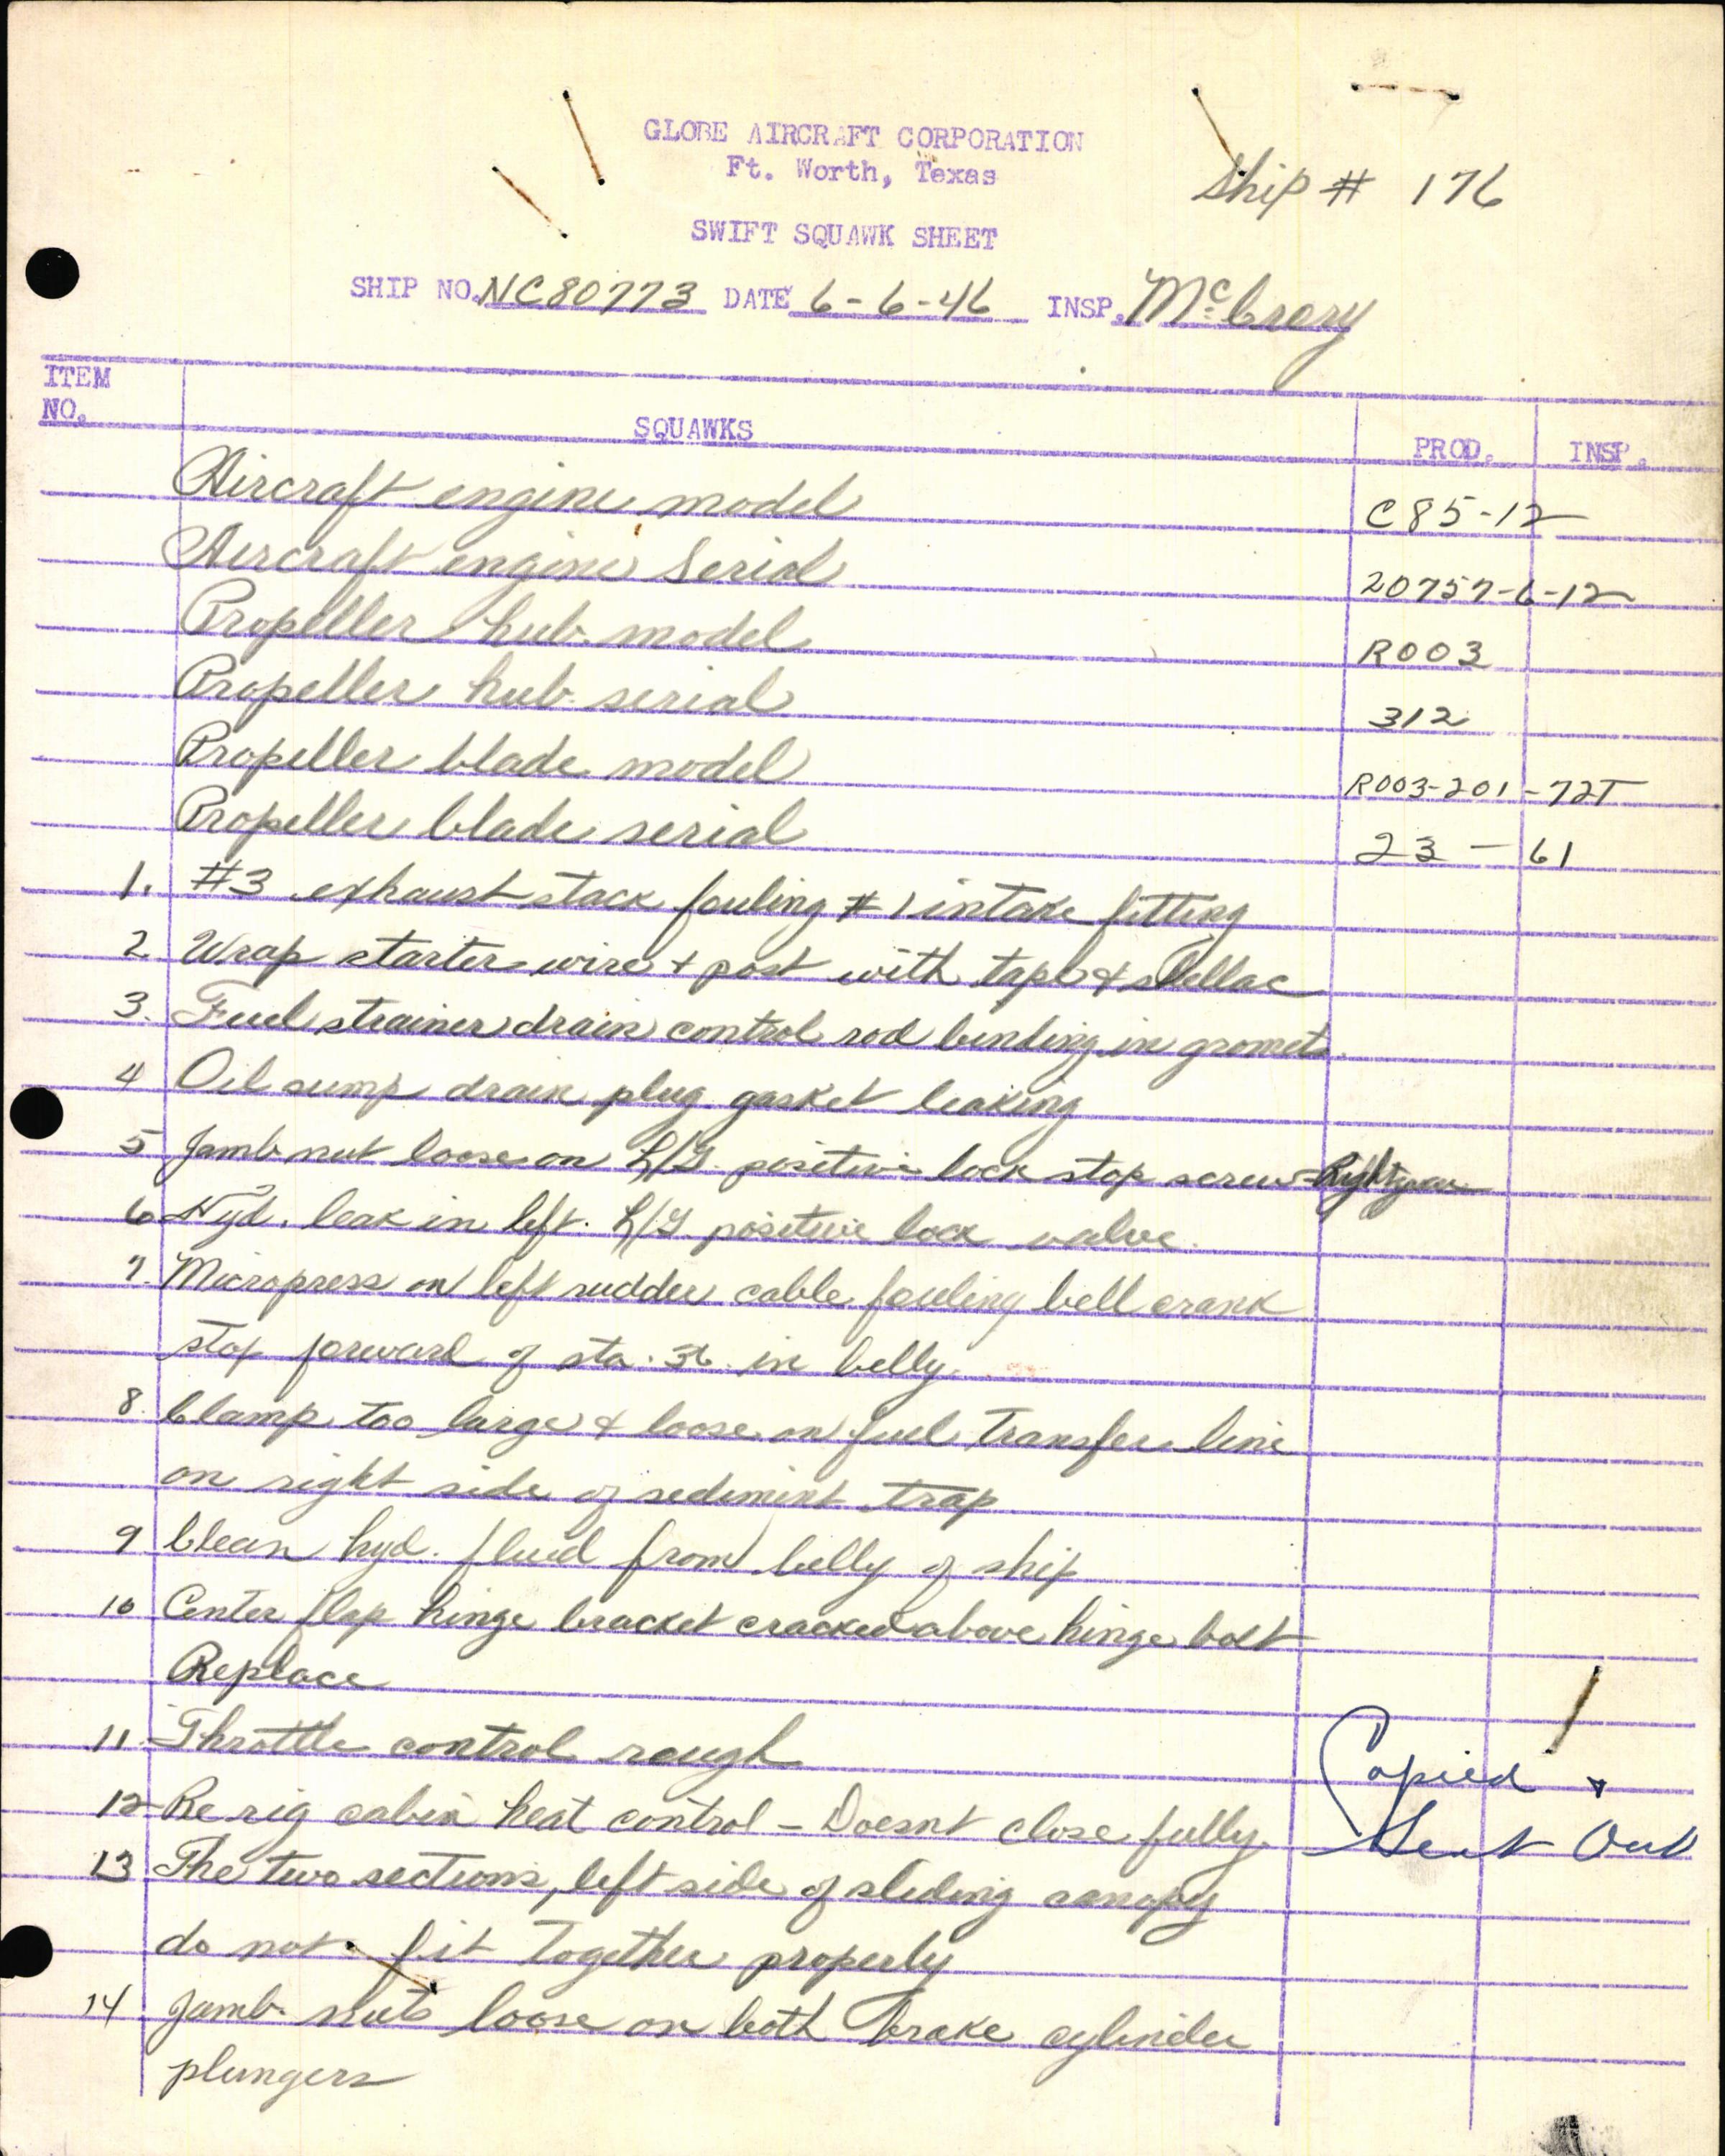 GLOBE AIRCRAFT CORPORATION
Ft. Worth, Texas
Ship # 176
SWIFT SQUAWK SHEET
SHIP NO. NC80773 DATE 6-6-46 INSP. McCrory
ITEM
NO.
SQUAWKS
PROD.
INSP.
Aircraft engine model C85-12
Aircraft engine serial 20757-6-12
Propeller hub model R003
Propeller hub serial 312
Propeller blade model R003-201-72T
Propeller blade serial 23 - 61
1. #3 exhaust stack fouling #1 intake fitting
2. Wrap starter wire + post with tape & shellac
3. Fuel strainer drain control rod binding in gromets.
4 Oil sump drain plug gasket leaking
5 Jamb nut loose on L/G. positive lock stop screw - Right gear
6 Hyd. leak in left. L/G. positive lock valve.
7. Micropress on left rudder cable fouling bell crank
stop forward of sta. 36 in belly.
8. Clamp too large & loose on fuel transfer line
on right side of sediment trap
9 Clean hyd. fluid from belly of ship
10 Center flap hinge bracket cracked above hinge bolt
Replace
11. Throttle control rough
12 Re rig cabin heat control - Doesnt close fully.
Copied &
Sent Out
13 The two sections, left side of sliding canopy
do not fit together properly
14 Jamb nuts loose on both brake cylinder
plungers